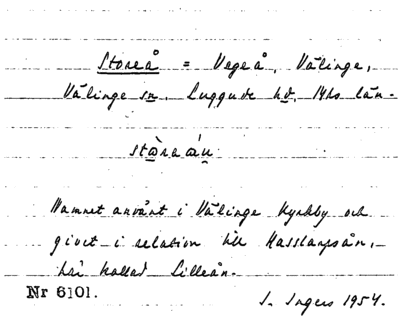 Storeå = Vegeå, Välinge,
Välinge sn. Luggude hd. Mhs län.
Namnet använt i Välinge kyrkby och
givet i relation till Hasslarpsån,
här kallad Lilleån.
Nr 6101.
I. Ingers 1954.